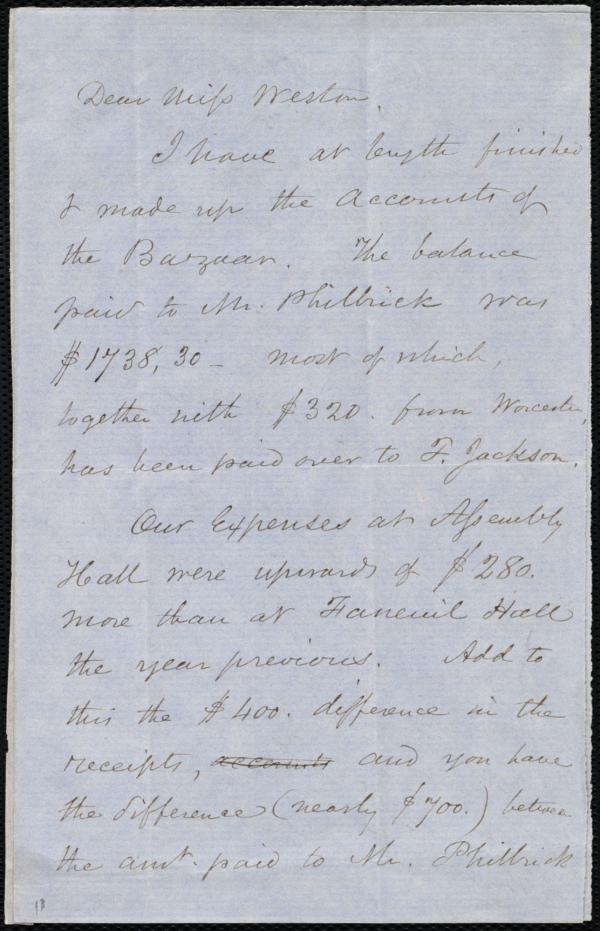 Dear Miss Weston,
I have at length finished
& made up the Accounts of
the Bazaar. The balance
paid to Mr. Philbrick was
$1738,30 – most of which,
together with $320. from Worcester,
has been paid over to F. Jackson.
Our Expenses at Assembly
Hall were upwards of $280.
more than at Faneuil Hall
the year previous. Add to
this the $400. difference in the
receipts, accounts and you have
the difference (nearly $700.) between
the amt. paid to Mr. Philbrick
18